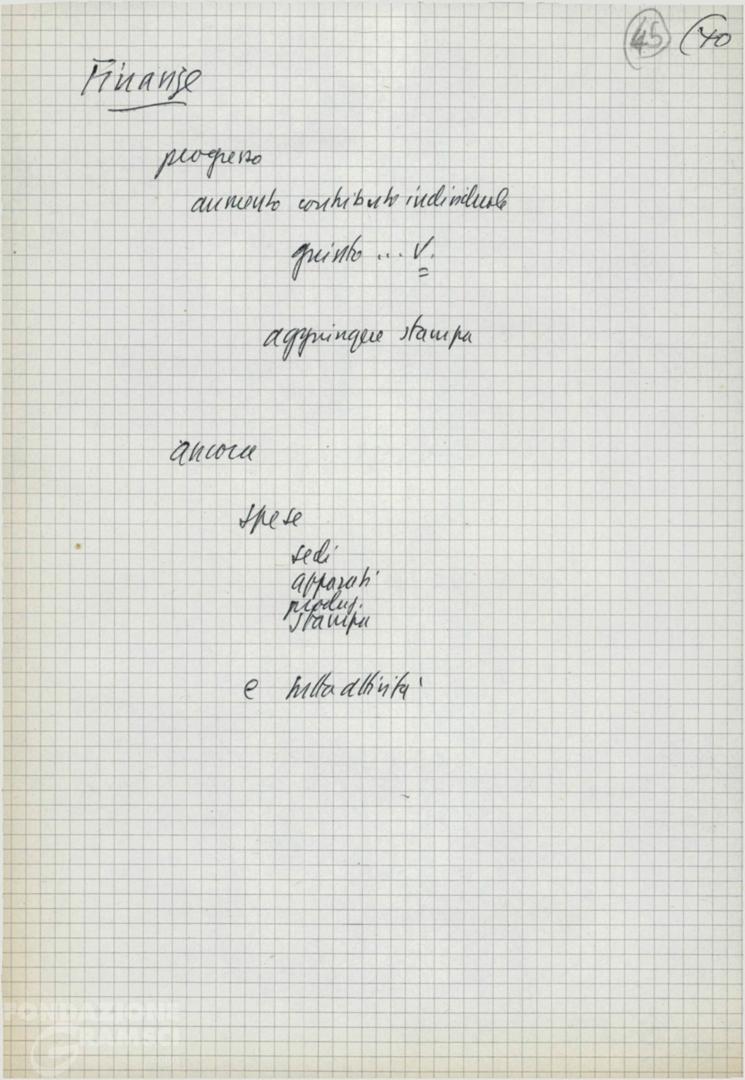 45 (40
Finanze
progresso
aumento contributo individuale
quinto ... V.
aggiungere stampa
ancora
spese
sedi
apparati
produz.
stampa
e tutta attività
FONDAZIONE
GRAMSCI